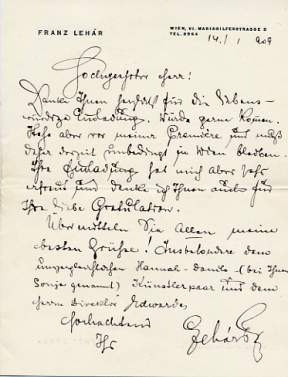 FRANZ LEHÁR
WIEN, VI. MARIAHILFERSTRASSE 5
TEL. 8964
14./1 909
Hochgeehrter Herr!
Danke Ihnen herzlichst für die liebens-
würdige Einladung. Würde gerne kommen.
Stehe aber vor meiner Première und muß
daher derzeit unbedingt in Wien bleiben.
Ihre Einladung hat mich aber sehr
erfreut und danke ich Ihnen auch für
Ihre liebe Gratulation.
Übermitteln Sie Allen meine
besten Grüsse! Insbesondere dem
unvergleichlichen Hanna-Danilo-(bei Ihnen
Sonja genannt) Künstlerpaar und dem
Herrn Direktor Edwardes
Hochachtend
Ihr
Lehár